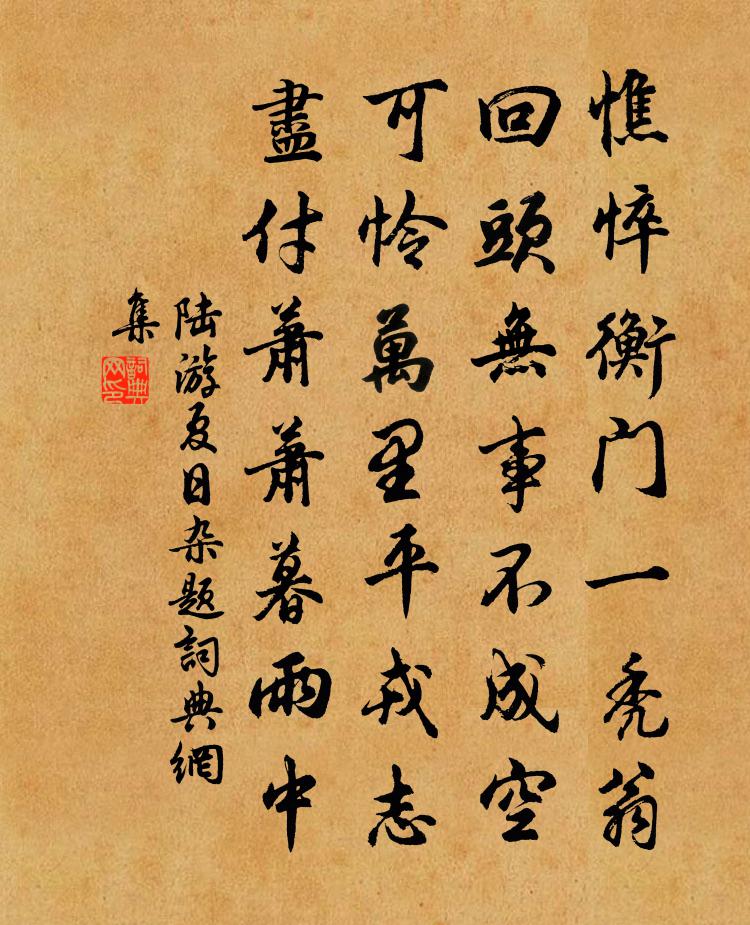 憔悴衡門一禿翁
回頭無事不成空
可怜萬里平戎志
盡付蕭蕭暮雨中
陆游夏日杂题詞典網
集
詞典
网印